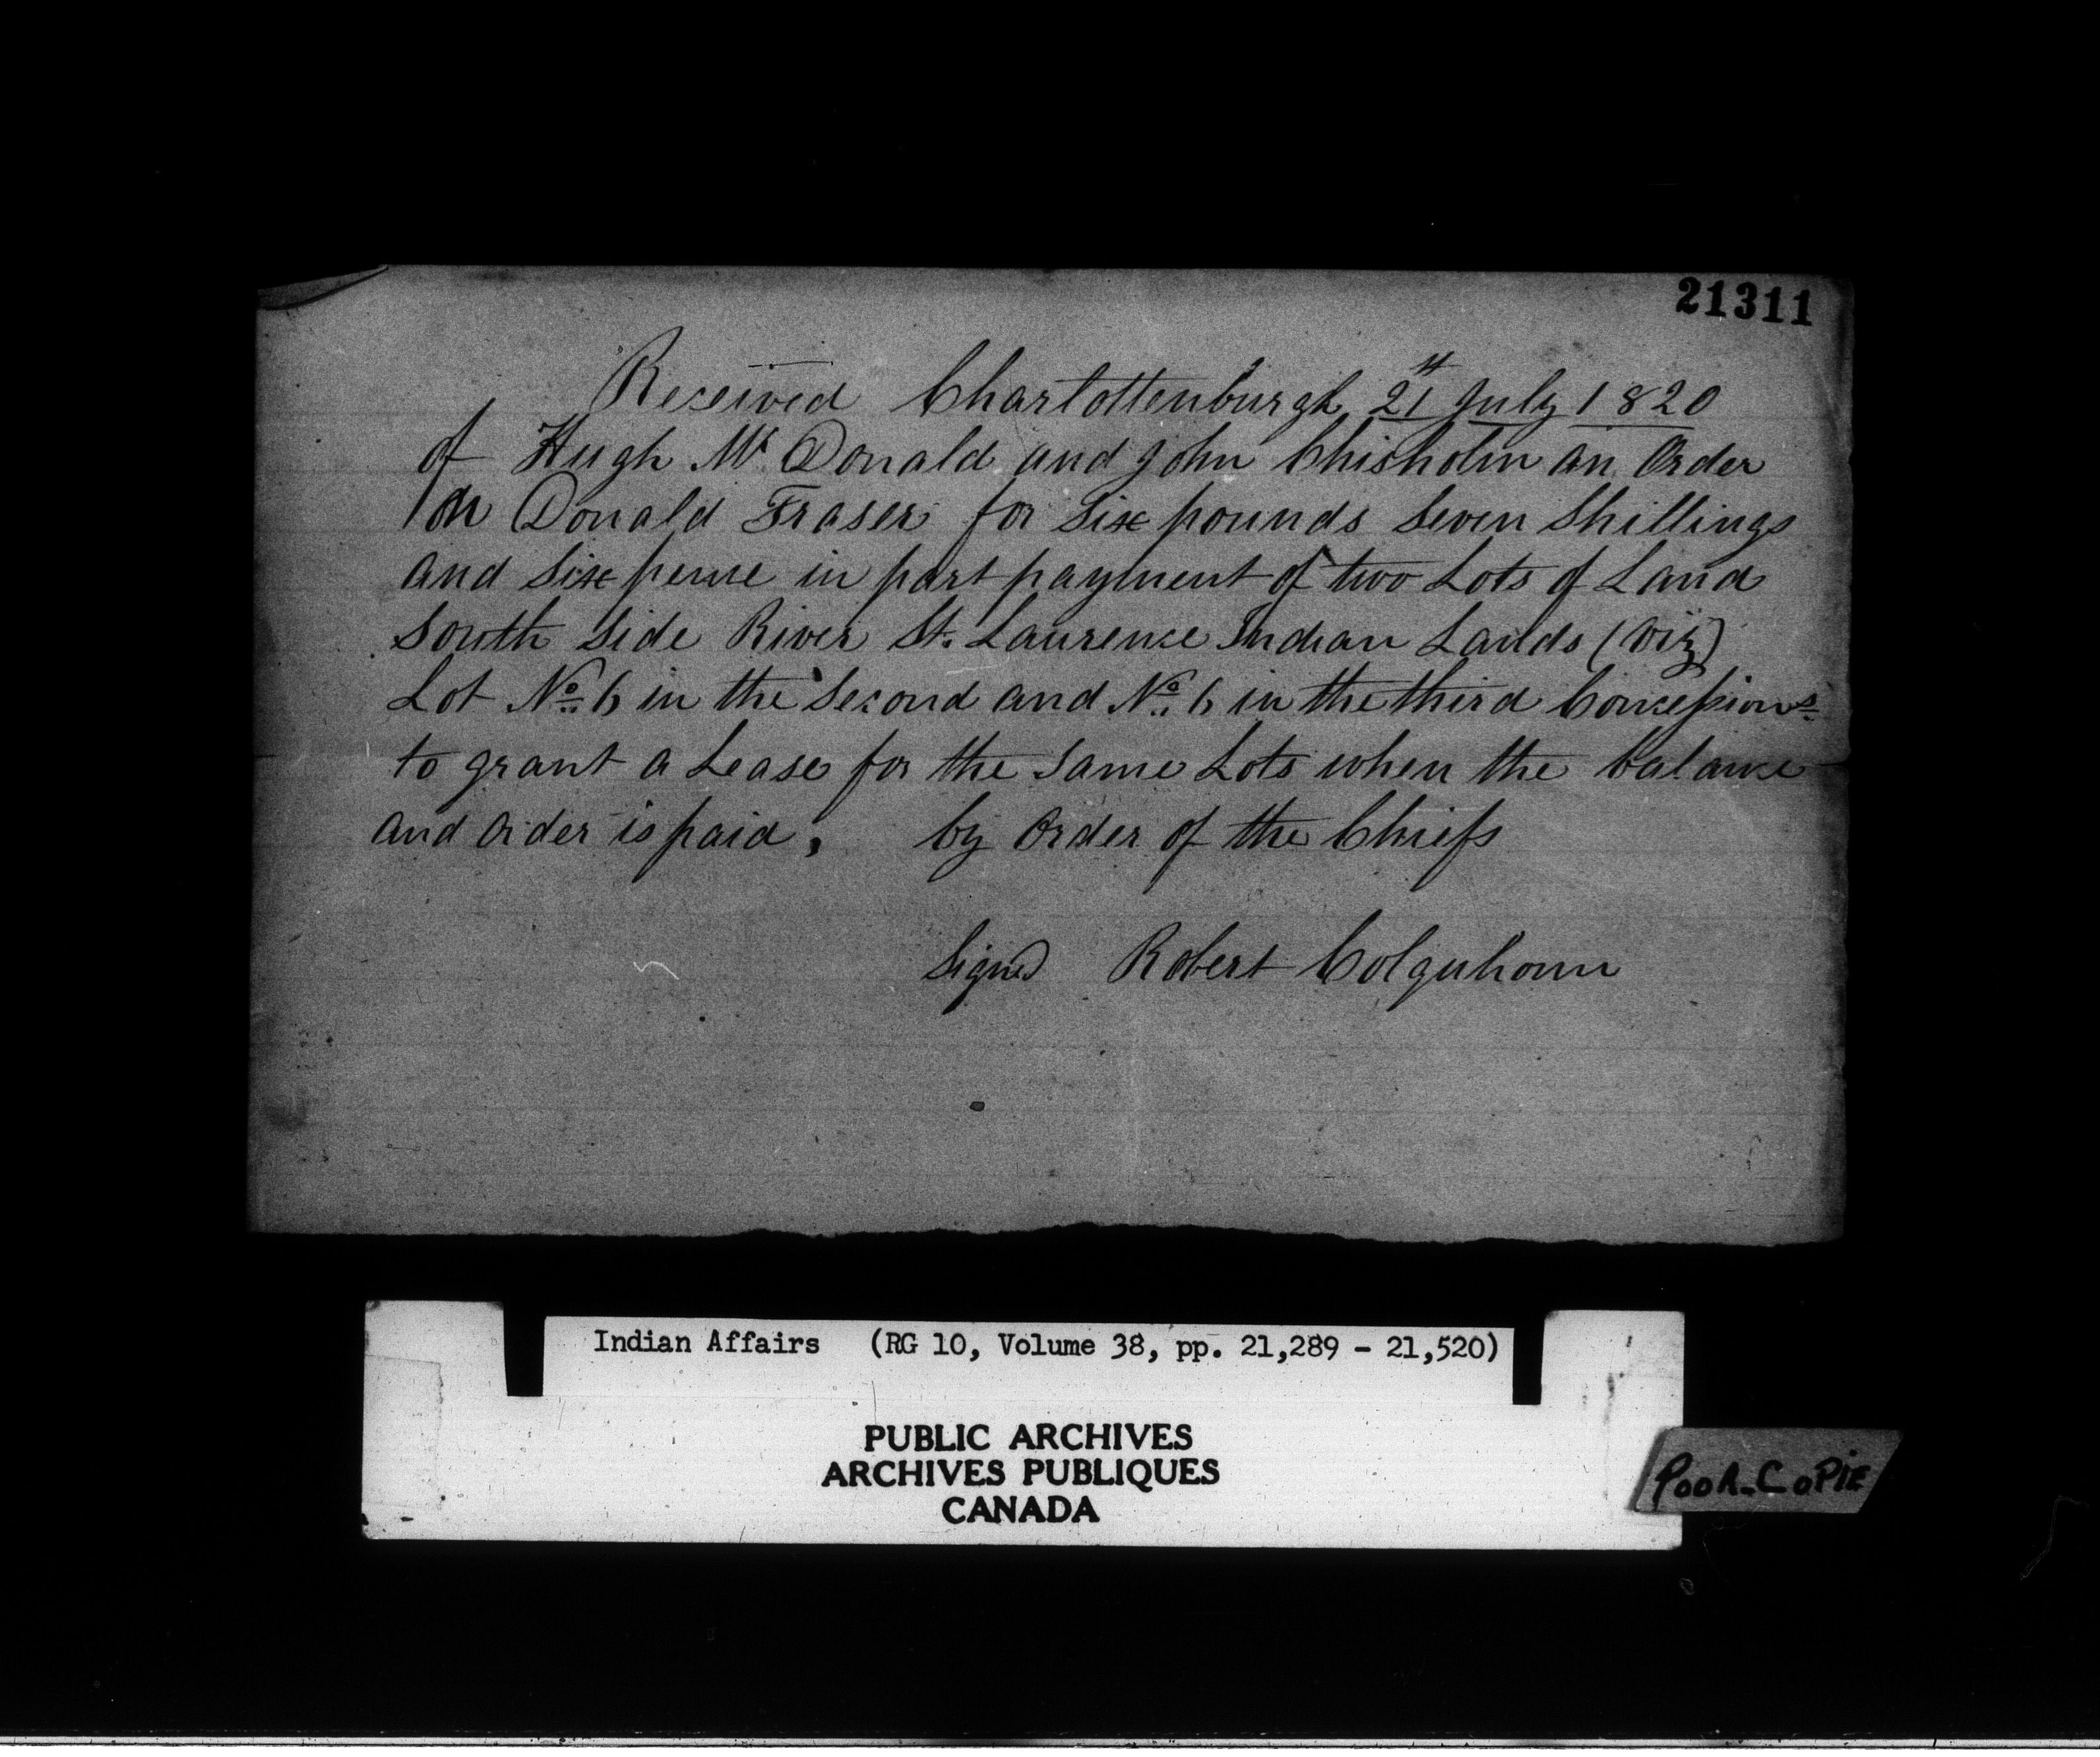 21311
Received Charlottenburgh 21st July 1820
of Hugh Mc Donald and John Chisholm an Order
on Donald Fraser for Six pounds Seven Shillings
and Six pence in part payment of two Lots of Land
South Side River St. Laurence Indian Lands (Viz)
Lot No. 6 in the Second and No. 6 in the third Concessions
to grant a Lease for the Same Lots when the balance
and Order is paid, by Order of the Chiefs
Signed Robert Colquhoun
Indian Affairs (RG 10, Volume 38, pp. 21,289 - 21,520)
PUBLIC ARCHIVES
ARCHIVES PUBLIQUES
CANADA
POOR-COPIE